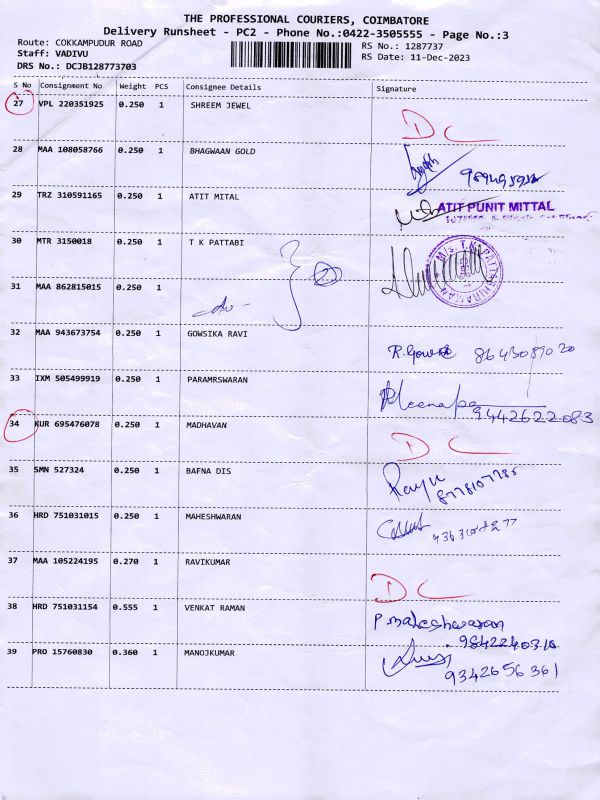 THE PROFESSIONAL COURIERS, COIMBATORE
Delivery Runsheet - PC2 - Phone No.:0422-3505555 - Page No.:3
Route: COKKAMPUDUR ROAD
RS No.: 1287737
Staff: VADIVU
RS Date: 11-Dec-2023
DRS No.: DCJB128773703
S No Consignment No Weight PCS Consignee Details Signature
27 VPL 220351925 0.250 1 SHREEM JEWEL
DC
28 MAA 108058766 0.250 1 BHAGWAAN GOLD
29 TRZ 310591165 0.250 1 ATIT MITAL
ATIT PUNIT MITTAL
30 MTR 3150018 0.250 1 T K PATTABI
31 MAA 862815015 0.250 1
32 MAA 943673754 0.250 1 GOWSIKA RAVI
R.Gowsik 8643089020
33 IXM 505499919 0.250 1 PARAMRSWARAN
Meenapa
9442622083
34 KUR 695476078 0.250 1 MADHAVAN
DC
35 SMN 527324 0.250 1 BAFNA DIS
36 HRD 751031015 0.250 1 MAHESHWARAN
37 MAA 105224195 0.270 1 RAVIKUMAR
DC
38 HRD 751031154 0.555 1 VENKAT RAMAN
P.maheshwaran
39 PRO 15760830 0.360 1 MANOJKUMAR
9342656361